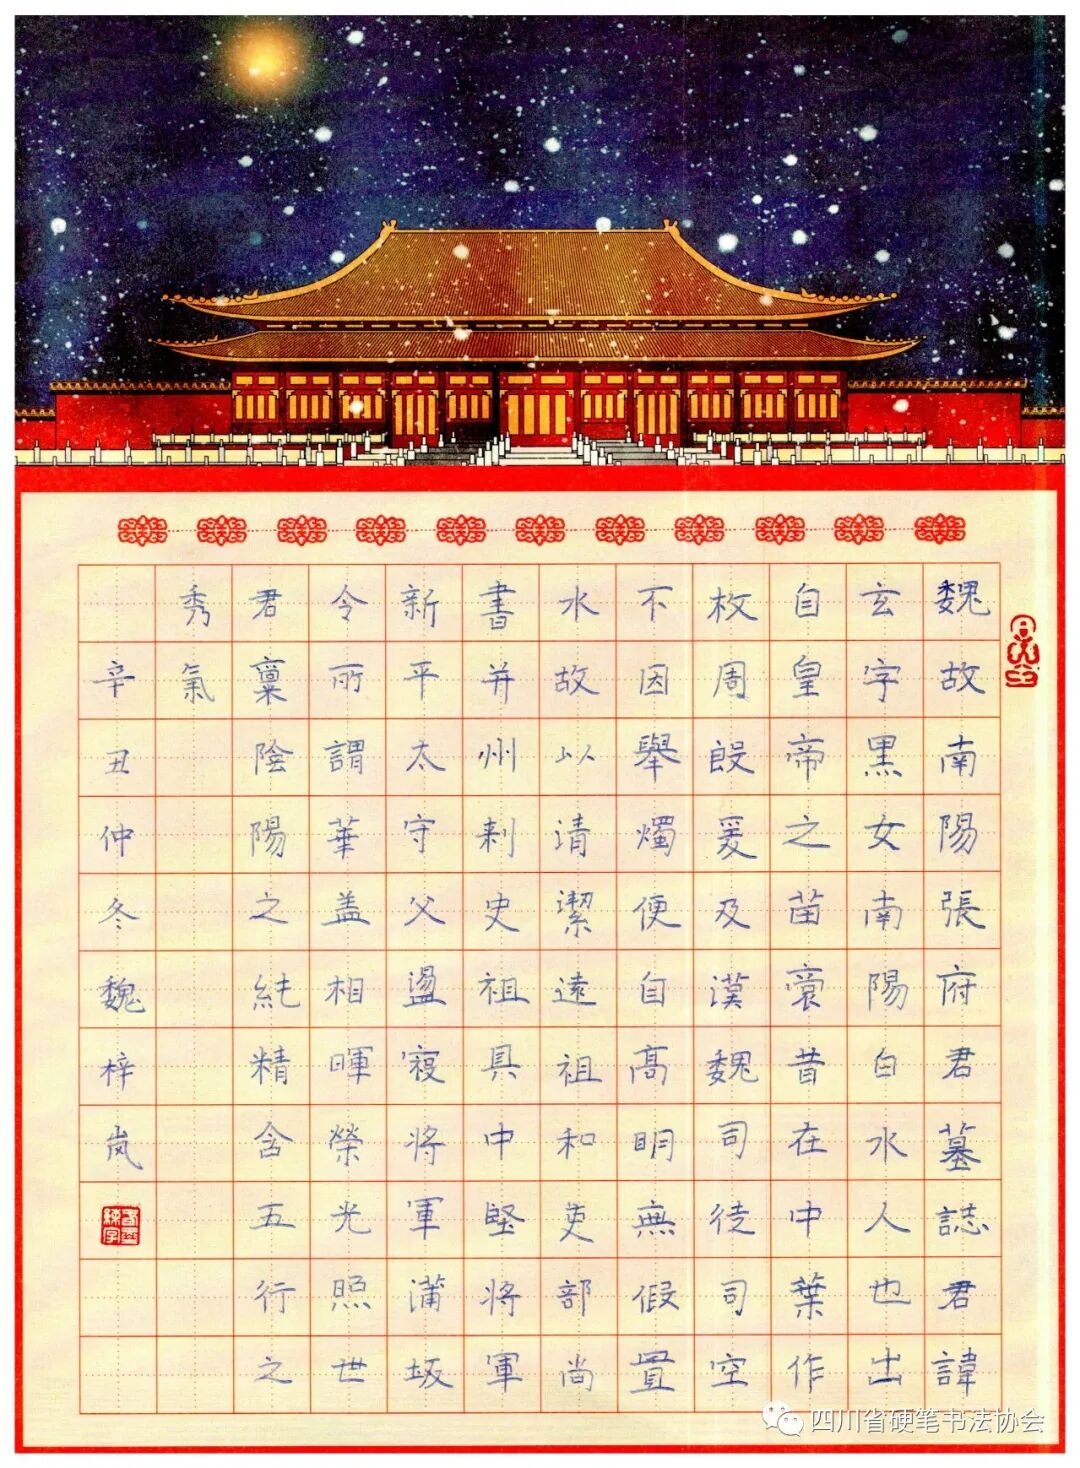 魏故南陽張府君墓誌君諱
玄字黑女南陽白水人也出
自皇帝之苗裔昔在中葉作
枚周殷爰及漢魏司徒司空
不因舉燭便自高明無假置
水故以清潔遠祖和吏部尚
書并州刾史祖具中堅將軍
新平太守父盪寇將軍蒲坂
令所謂華盖相暉榮光照世
君稟陰陽之純精含五行之
秀氣
辛丑仲冬魏梓岚
四川省硬笔书法协会